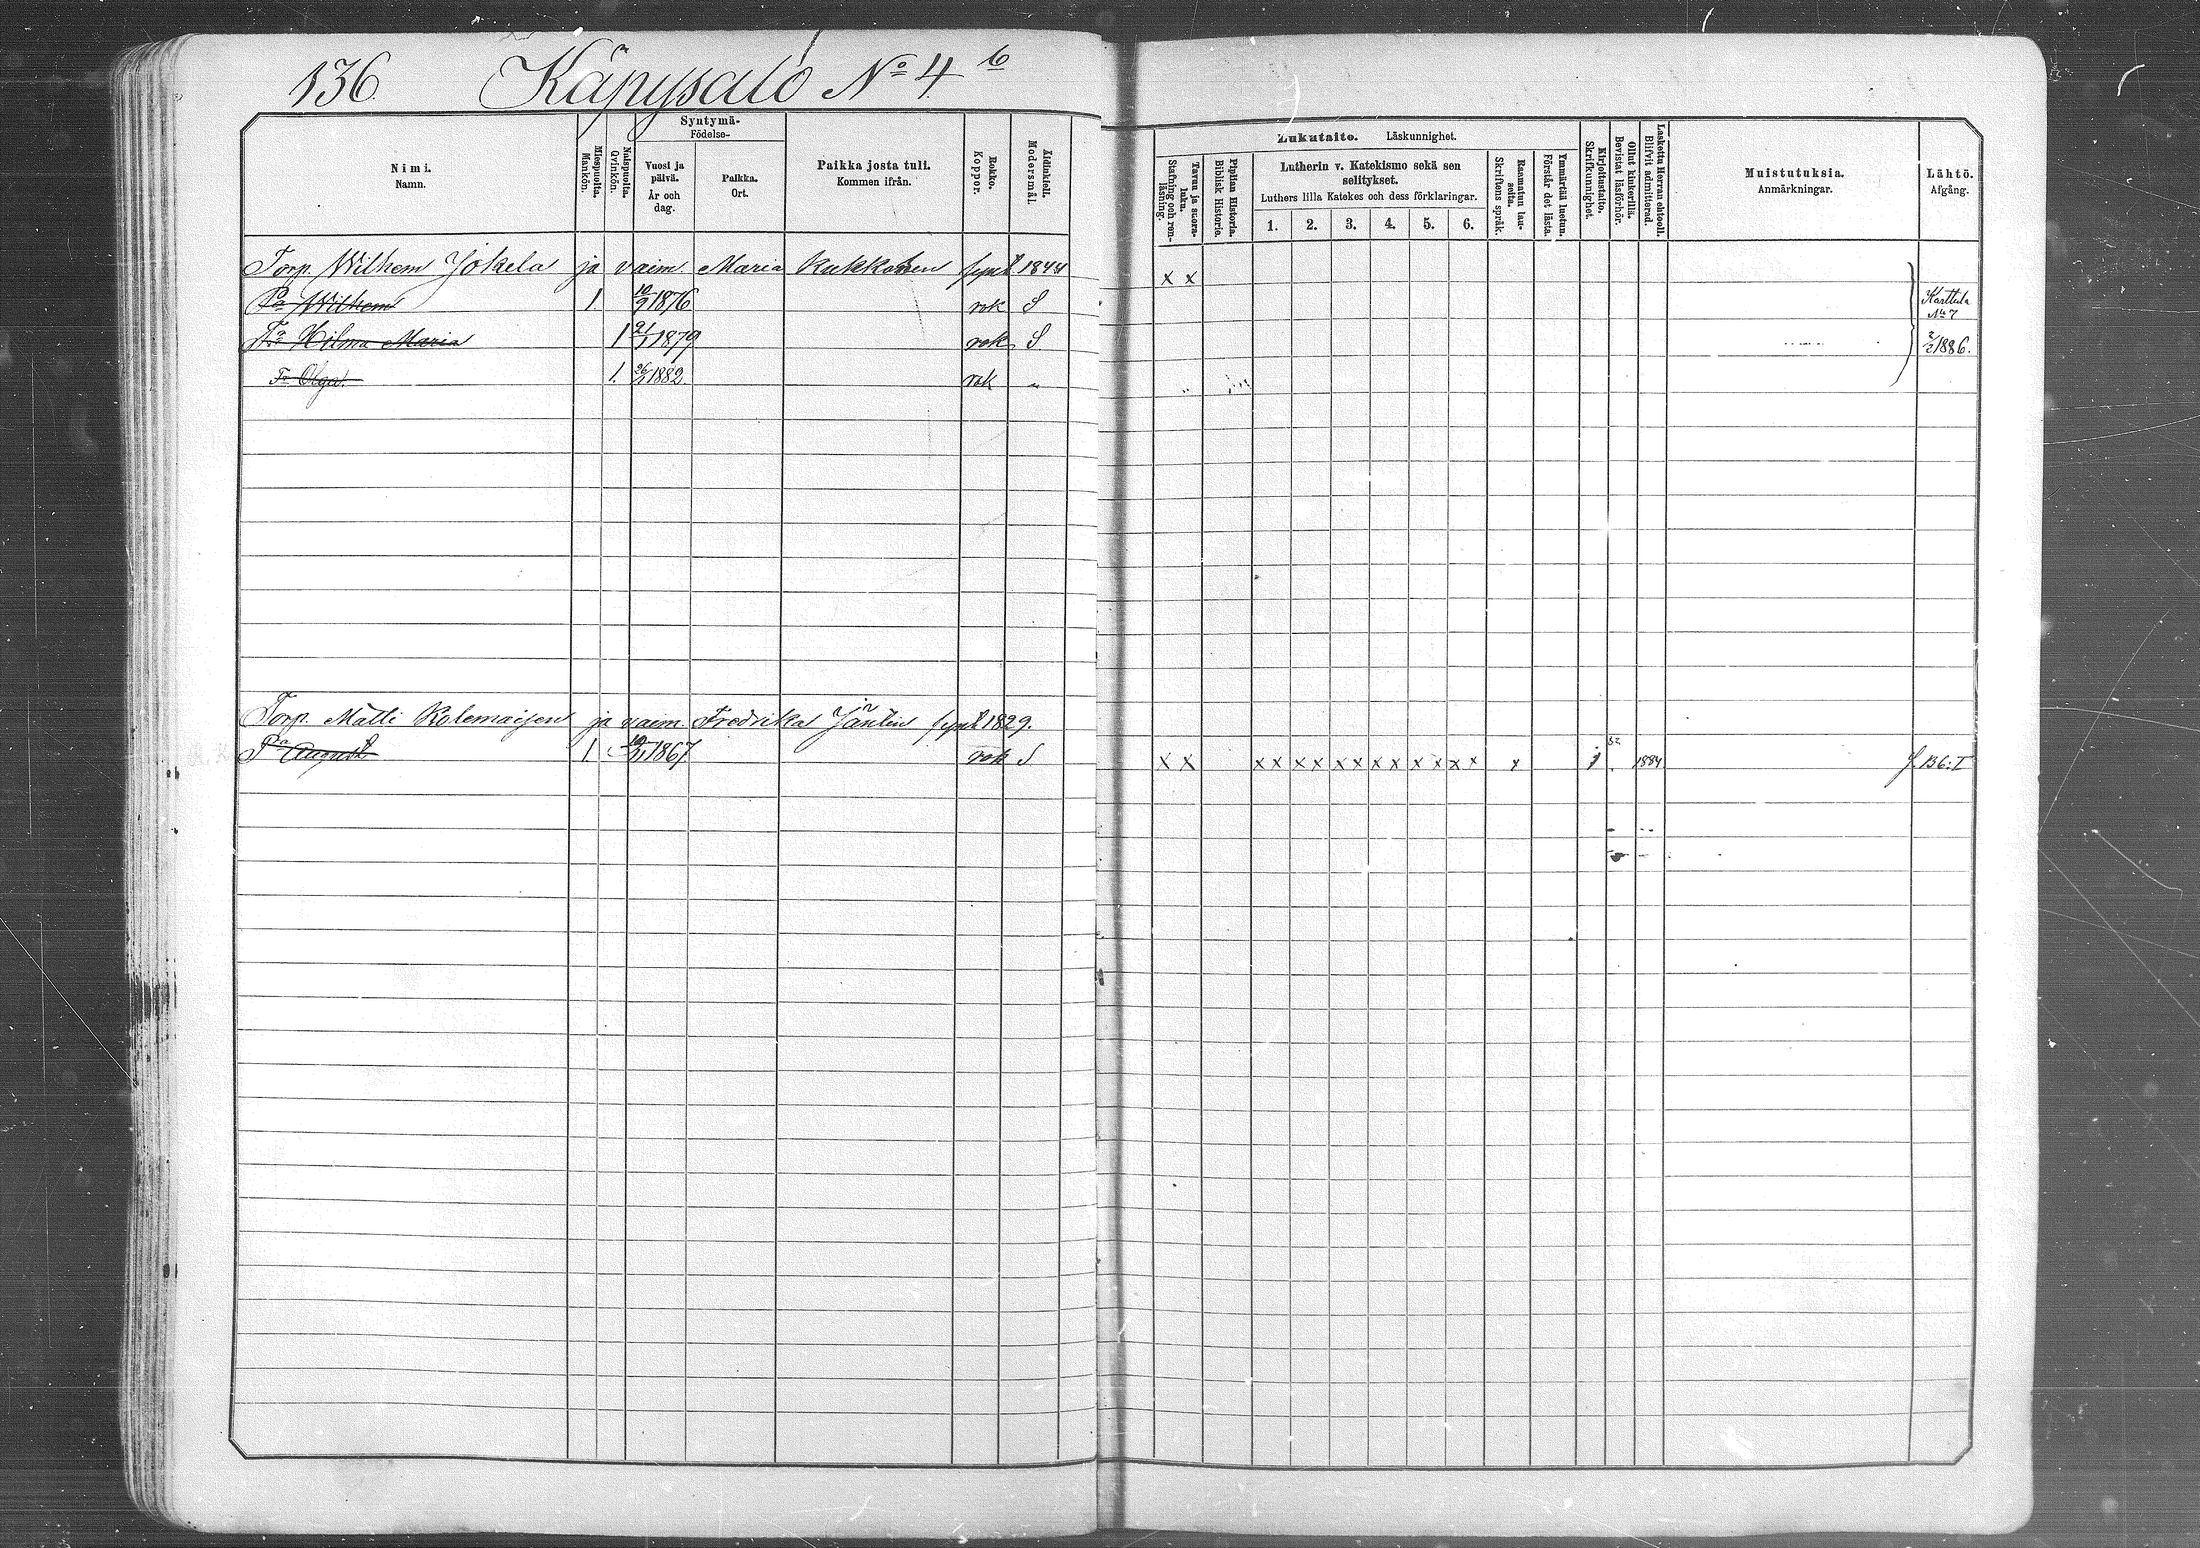 136. Käpysalo No 4 b
Syntymä-
Födelse-
Nimi.
Namn.
Miespuolta.
Mankön.
Naispuolta.
Qvinkön.
Vuosi ja
päivä.
År och
dag.
Paikka.
Ort.
Paikka josta tuli.
Kommen ifrån.
Rokko.
Koppor.
Äidinkieli.
Modersmål.
Lukutaito. Läskunnighet.
Tavuu ja suora-
luku.
Stafning och ren-
läsning.
Piplian Historia.
Biblisk Historie.
Lutherin v. Katekismo sekä sen
selitykset.
Luthers lilla Katekes och dess förklaringar.
1. 2. 3. 4. 5. 6.
Raamatun lau-
seita.
Skriftens språk.
Ymmärtää luetun.
Förstår det lästa.
Kirjoitustaito.
Skrifkunnighet.
Ollut kinkerillä.
Bevistat läsförhör.
Laskettu Herran ehtooll.
Blifvit admitterad.
Muistutuksia.
Anmärkningar.
Lähtö.
Afgång.
Torp. Wilhem Jokela ja vaim. Maria Kukkonen synt. 1844
x x
Pa Wilhem 1. 10/9 1876 rok S Karttula
No 7
Ta Hilma Maria 1 21/1 1879 rok S 2/2 1886.
Tr Olga 1. 26/2 1882. rok "
Torp. Matti Kolemaisen ja vaim. Fredrika Jäntin synt. 1829.
Pa August 1. 10/11 1867 rok S x x x x x x x x x x x x x x x 1884 s. 136:I